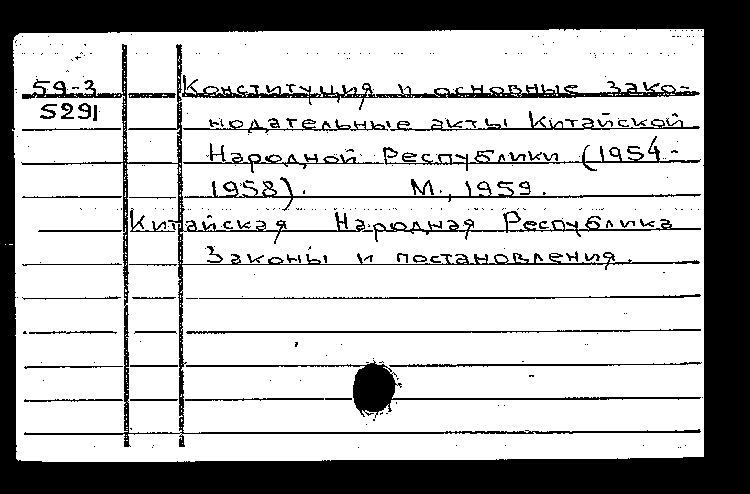 59-3 Конституция и основные зако-
5291 нодательные акты Китайской
Народной Республики (1954-
1958). М., 1959.
Китайская Народная Республика
Законы и постановления.